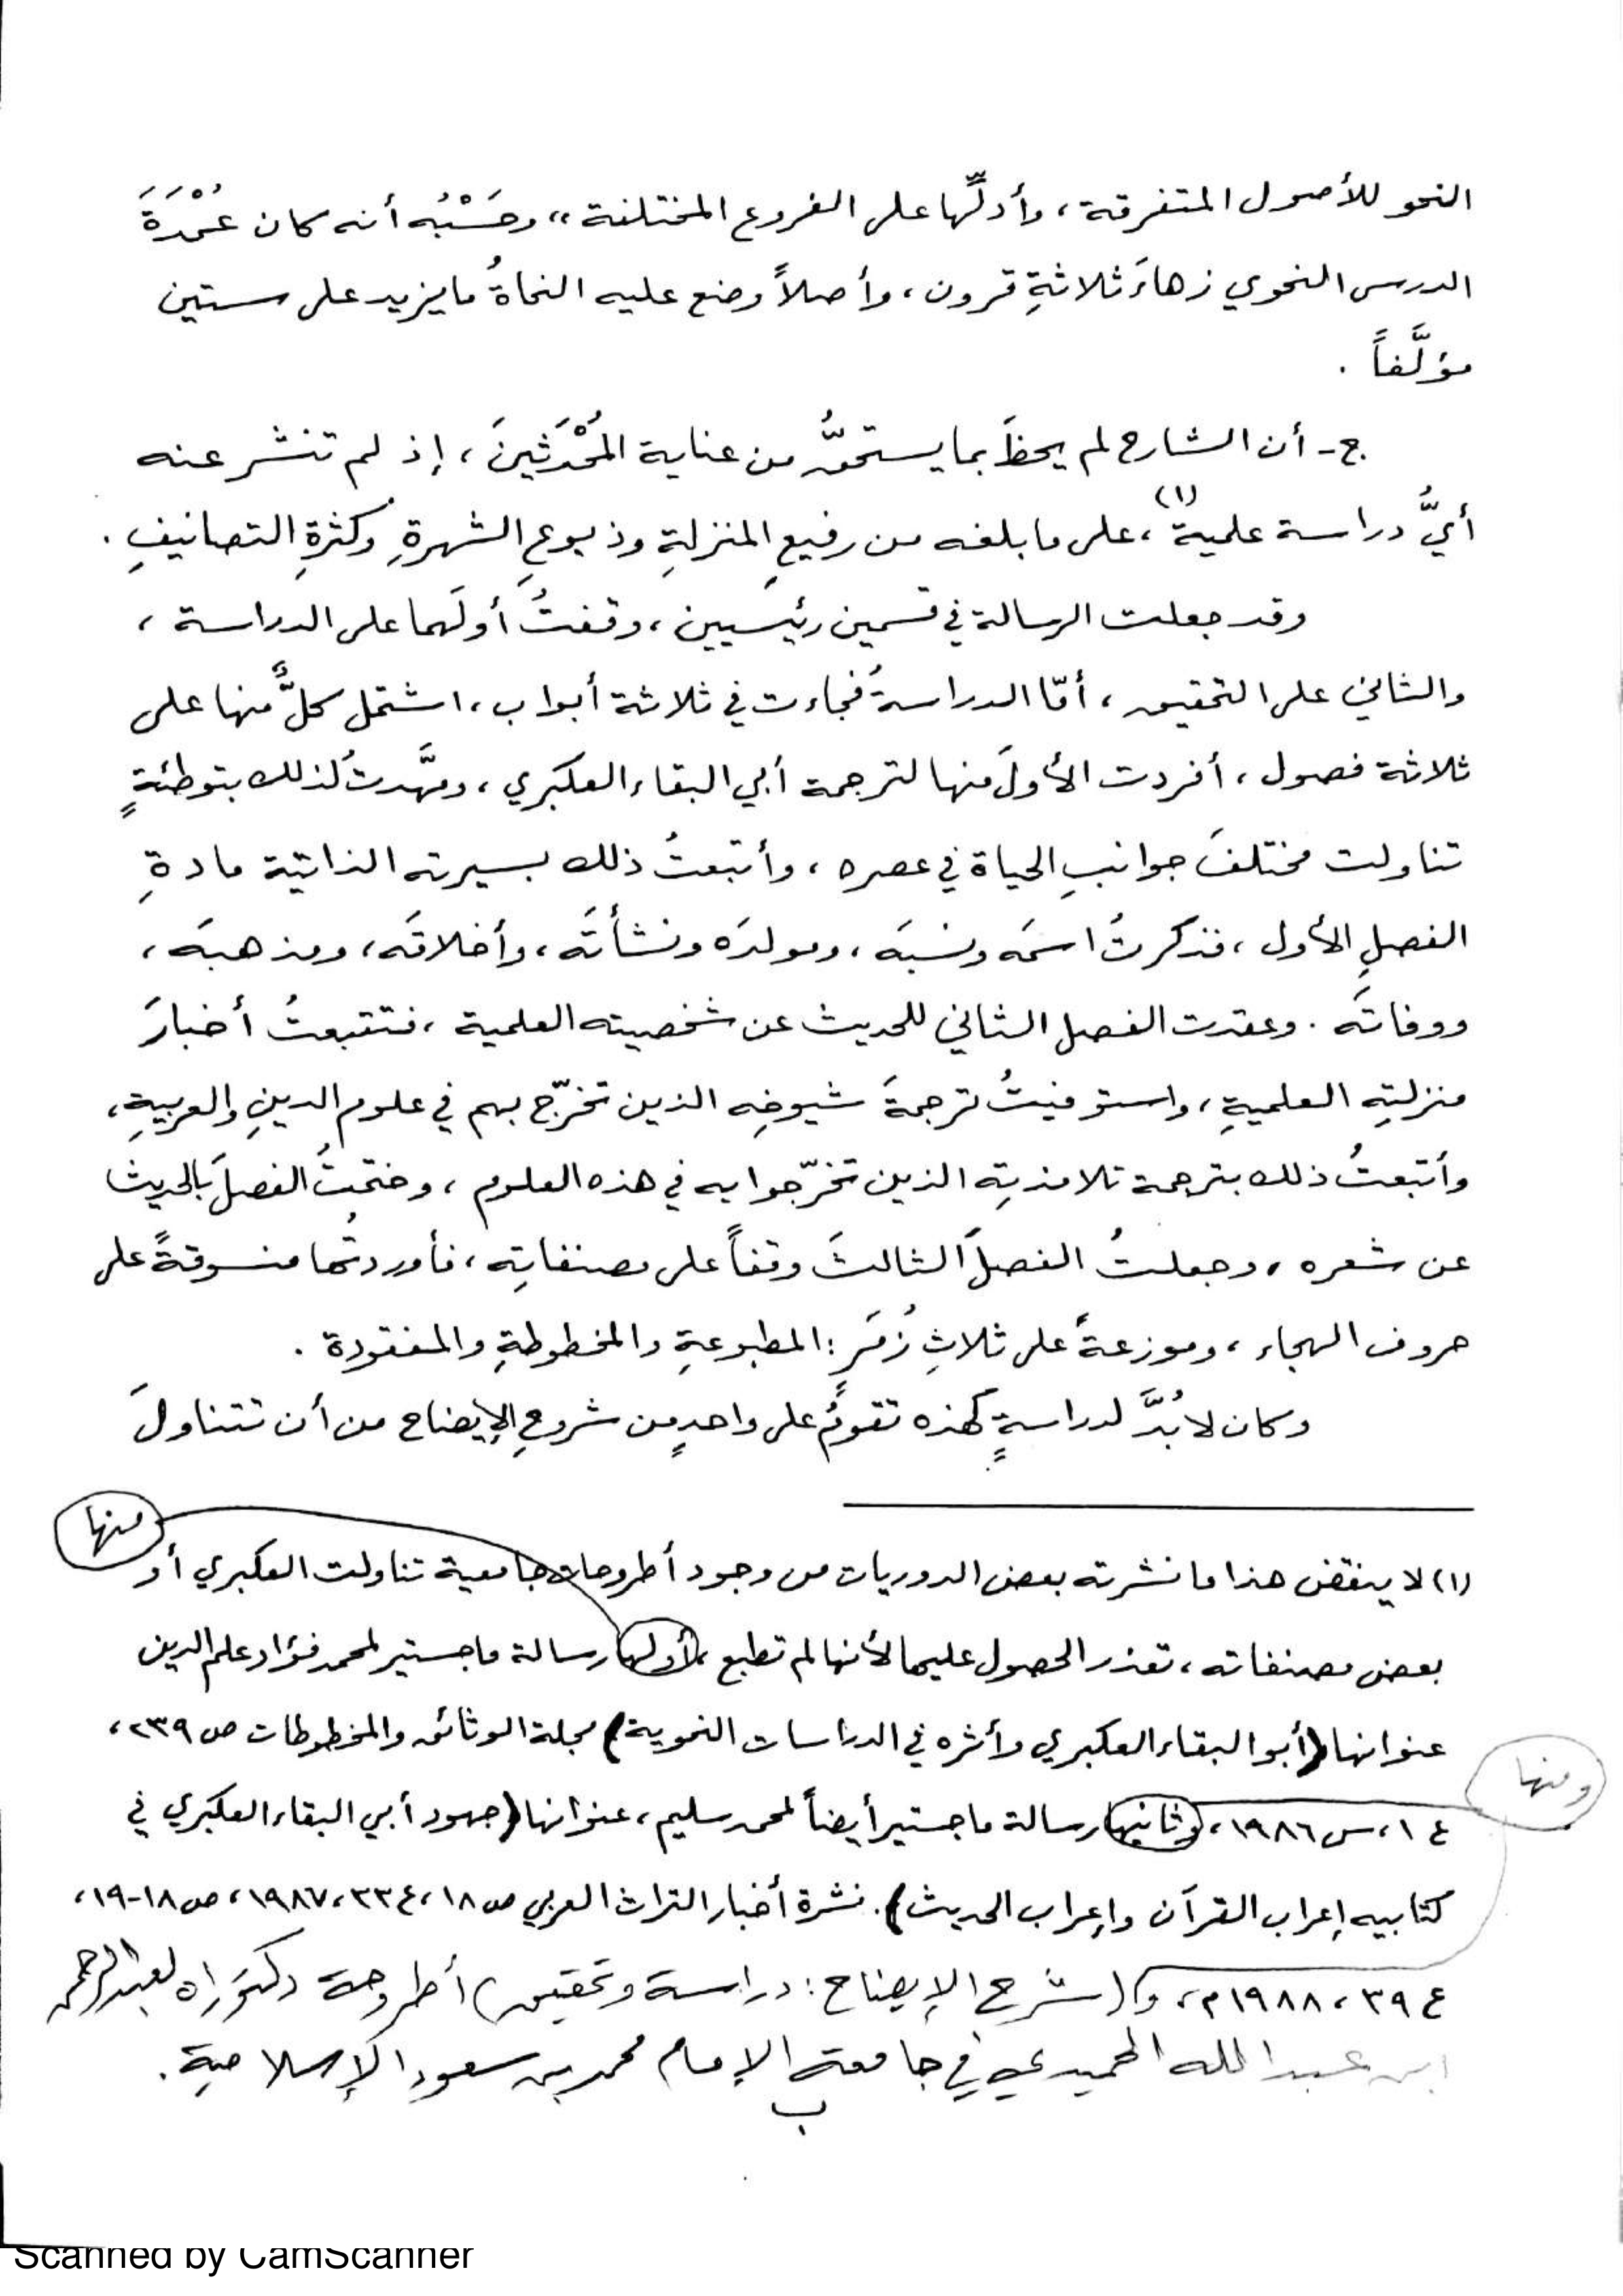 النحو للأصول المتفرقة، وأدلِّها على الفروع المختلفة،، وحَسْبُه أنه كان عُمْدَةَ
الدرس النحوي زهاءَ ثلاثةِ قرون، وأصلاً وضع عليه النحاةُ ما يزيد على ستين
مؤلَّفاً .
ج- أن الشارح لم يحظَ بما يستحقُّه من عناية المُحْدَثينَ، إذ لم تنشر عنه
أيُّ دراسة علمية(١)، على ما بلغه من رفيعِ المنزلةِ وذيوعِ الشهرةِ وكثرةِ التصانيفِ .
وقد جعلت الرسالة في قسمين رئيسيين، وقفتُ أولَهما على الدراسة ،
والثاني على التحقيق ، أمّا الدراسةُ فجاءت في ثلاثة أبواب، اشتمل كلٌّ منها على
ثلاثة فصول ، أفردت الأولَ منها لترجمة أبي البقاء العكبري ، ومهَّدتُ لذلك بتوطئةٍ
تناولت مختلفَ جوانبِ الحياة في عصره ، وأتبعتُ ذلك بسيرته الذاتية مادةِ
الفصلِ الأول ، فذكرتُ اسمَه ونسبَه ، ومولدَه ونشأتَه ، وأخلاقَه، ومذهبَه ،
ووفاتَه . وعقدت الفصل الثاني للحديث عن شخصيته العلمية ، فتتبعتُ أخبارَ
منزلتِه العلميةِ ، واستوفيتُ ترجمةَ شيوخِه الذين تخرّج بهم في علوم الدينِ والعربيةِ ،
وأتبعتُ ذلك بترجمة تلامذتِه الذين تخرّجوا به في هذه العلوم ، وختمتُ الفصلَ بالحديث
عن شعره ، وجعلتُ الفصلَ الثالثَ وقفاً على مصنفاتِه ، فأوردتُها منسوقةً على
حروف الهجاء ، وموزعةً على ثلاثِ زُمَرٍ : المطبوعةِ والمخطوطةِ والمفقودة .
وكان لا بُدَّ لدراسةٍ كهذه تقومُ على واحدٍ من شروحِ الإيضاح من أن تتناولَ
منها
(١) لا ينقض هذا ما نشرته بعض الدوريات من وجود أطروحات جامعية تناولت العكبري أو
بعض مصنفاته ، تعذر الحصول عليها لأنها لم تطبع ، أولها رسالة ماجستير لمحمد فؤاد علم الدين
عنوانها (أبو البقاء العكبري وأثره في الدراسات النحوية) مجلة الوثائق والمخطوطات ص ٢٣٩ ،
ومنها
ع ١ ، س ١٩٨٦ ، وثانيها رسالة ماجستير أيضاً لمحمد سليم ، عنوانها (جهود أبي البقاء العكبري في
كتابيه إعراب القرآن وإعراب الحديث). نشرة أخبار التراث العربي ص ١٨ ، ع ٣٣ ، ١٩٨٧ ، ص ١٨-١٩ ،
ع ٣٩ ، ١٩٨٨م ، و(شرح الإيضاح : دراسة وتحقيق) أطروحة دكتوراه لعبد الرحمن
ابن عبد الله الحميدي في جامعة الإمام محمد بن سعود الإسلامية .
ب
Scanned by CamScanner